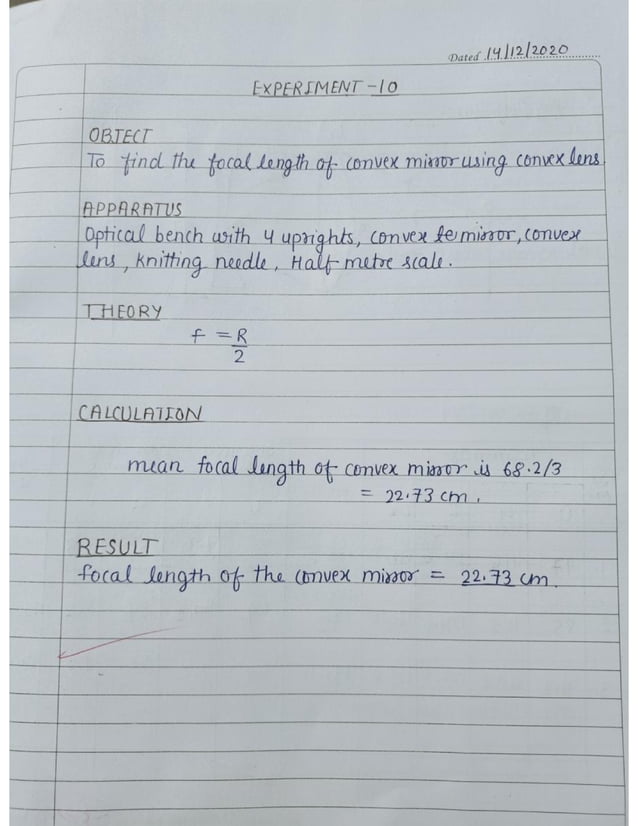 Dated 14/12/2020
EXPERIMENT-10
OBJECT
To find the focal length of convex mirror using convex lens
APPARATUS
Optical bench with 4 uprights, convex mirror, convex
lens, knitting needle, Half metre scale.
THEORY
f = R/2
CALCULATION
mean focal length of convex mirror is 68.2/3
= 22.73 cm.
RESULT
focal length of the convex mirror = 22.73 cm.